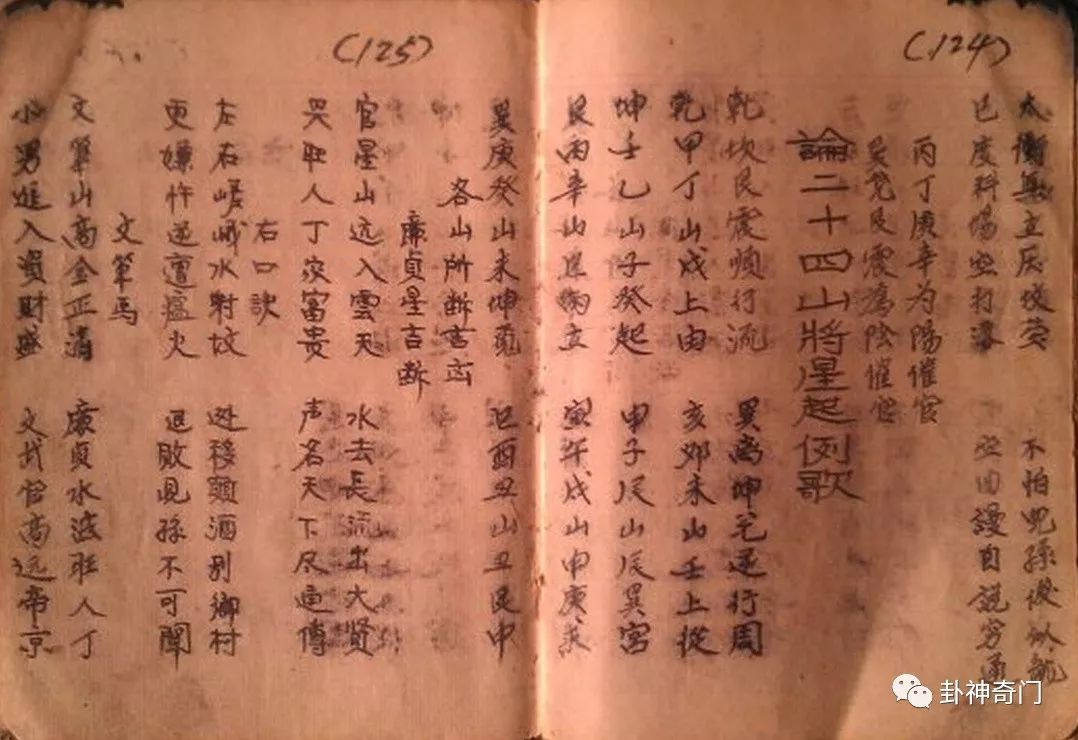 (124)
太衡 立 不怕 孫後似龍
已度 陽 打 漫自説
丙丁庚辛为陽催官
巽兌艮震為陰催官
論二十四山將星起例歌
乾坎艮震順行流 巽离坤兌逆行周
乾甲丁山戌上由 亥卯未山壬上從
坤壬乙山子癸起 申子辰山辰巽宮
艮丙辛山 立 寅午戌山申庚
(125)
巽庚癸山未坤 巳酉丑山丑艮中
各山所断吉凶
廉貞星吉断
官星山远入雲天 水去長流出大賢
人丁家富貴 声名天下尽通傳
右口訣
左右嵯峨水射坟 遊移 酒别鄉村
更嫌忤逆遭瘟火 退敗児孫不可聞
文筆馬
文筆山高金正清 廉貞水 旺人丁
小男進入資財盛 文 官高远帝京
卦神奇门